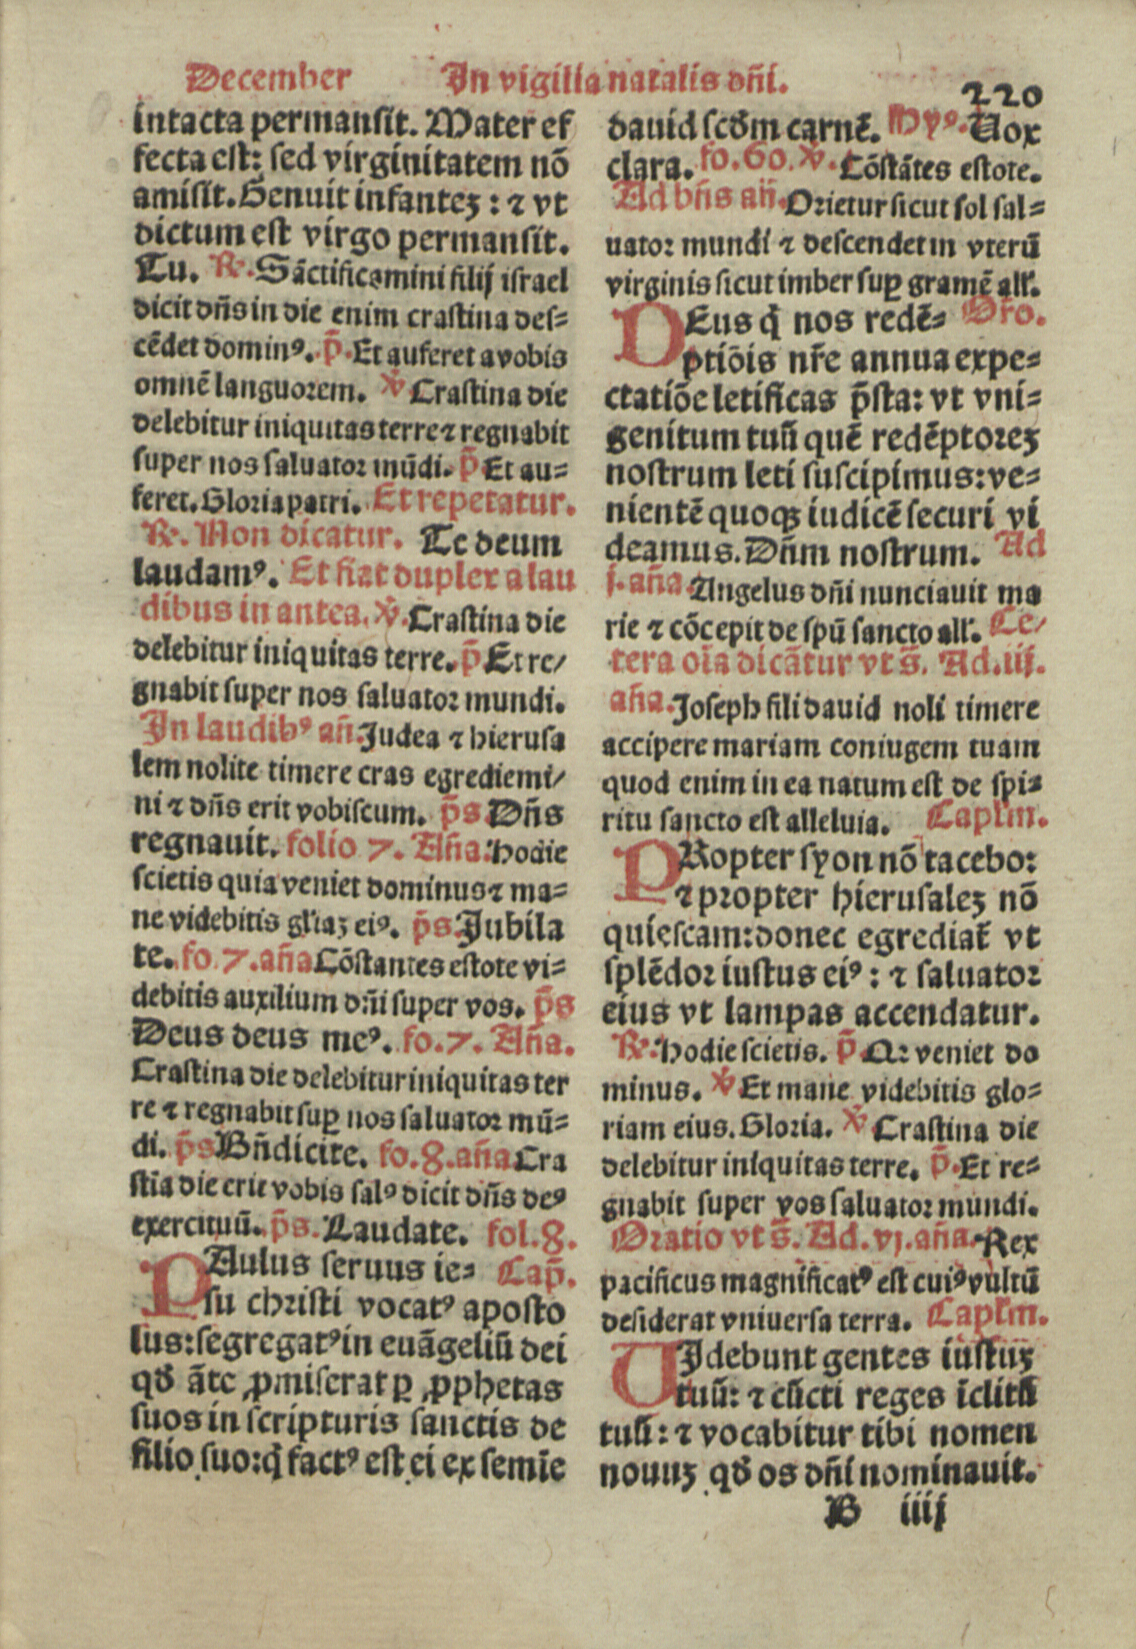 December In vigilia natalis dñi.
220
intacta permansit. Mater ef
fecta est: sed virginitatem nõ
amisit. Genuit infanteʒ : ⁊ vt
dictum est virgo permansit.
Tu. ℟. Sãctificamini filij israel
dicit dñs in die enim crastina des=
cẽdet dominꝰ. p̃. Et auferet a vobis
omnẽ languorem. ℣ Crastina die
delebitur iniquitas terre ⁊ regnabit
super nos saluator mũdi. p̃ Et au=
feret. Gloria patri. Et repetatur.
℟. Non dicatur. Te deum
laudamꝰ. Et fiat duplex a lau
dibus in antea. ℣. Crastina die
delebitur iniquitas terre. p̃ Et re/
gnabit super nos saluator mundi.
In laudibꝰ añ. Judea ⁊ hierusa
lem nolite timere cras egrediemi/
ni ⁊ dñs erit vobiscum. p̃s Dñs
regnauit. folio 7. Aña. Hodie
scietis quia veniet dominus ⁊ ma=
ne videbitis gl'iaʒ eiꝰ. p̃s. Jubila
te. fo. 7. aña Cõstantes estote vi=
debitis auxilium dñi super vos. p̃s
Deus deus meꝰ. fo. 7. Aña.
Crastina die delebitur iniquitas ter
re ⁊ regnabit suꝑ nos saluator mũ=
di. p̃s Bñdicite. fo. 8. aña Cra
stia die erit vobis salꝰ dicit dñs deꝰ
exercituũ. p̃s. Laudate. fol. 8.
PAulus seruus ie= Cap̃.
su christi vocatꝰ aposto
lus: segregatꝰ in euãgeliũ dei
qđ ãte ꝓmiserat ꝑ ꝓphetas
suos in scripturis sanctis de
filio suo: q̃ factꝰ est ei ex semĩe
dauid scđm carnẽ. Hyꝰ. Uox
clara. fo. 60. ℣. Cõstãtes estote.
Ad bñs añ. Orietur sicut sol sal=
uator mundi ⁊ descendet in vterũ
virginis sicut imber suꝑ gramẽ all'.
DEus q̃ nos redẽ= Oro.
ptiõis nr̃e annua expe=
ctatiõe letificas p̃sta: vt vni=
genitum tuũ quẽ redẽptoreʒ
nostrum leti suscipimus: ve=
nientẽ quoqʒ iudicẽ securi vi
deamus. Dñm nostrum. Ad
j. aña. Angelus dñi nunciauit ma
rie ⁊ cõcepit de spũ sancto all'. Ce/
tera oĩa dicãtur vt s̃. Ad. iij.
aña. Joseph fili dauid noli timere
accipere mariam coniugem tuam
quod enim in ea natum est de spi=
ritu sancto est alleluia. Capl'm.
PRopter syon nõ tacebo:
⁊ propter hierusaleʒ nõ
quiescam: donec egrediat̃ vt
splẽdor iustus eiꝰ: ⁊ saluator
eius vt lampas accendatur.
℟. Hodie scietis. p̃. Qꝛ veniet do
minus. ℣ Et mane videbitis glo=
riam eius. Gloria. ℣ Crastina die
delebitur iniquitas terre. p̃. Et re=
gnabit super vos saluator mundi.
Oratio vt s̃. Ad. vj. aña. Rex
pacificus magnificatꝰ est cuiꝰ vultũ
desiderat vniuersa terra. Capl'm.
UJdebunt gentes iustuʒ
tuũ: ⁊ cũcti reges ĩclitũ
tuũ: ⁊ vocabitur tibi nomen
nouuʒ qđ os dñi nominauit.
B iiij